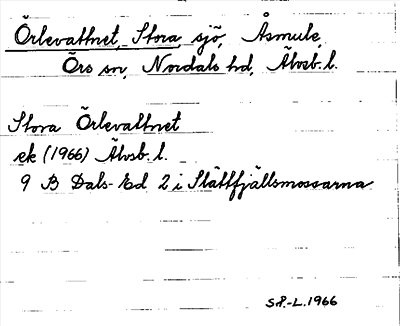 Örlevattnet, Stora, sjö, Åsmule,
Örs sn, Nordals hd, Älvsb. l.
Stora Örlevattnet
ek (1966) Älvsb. l.
9 B Dals-Ed 2 i Slättfjällsmossarna
S.P.-L. 1966